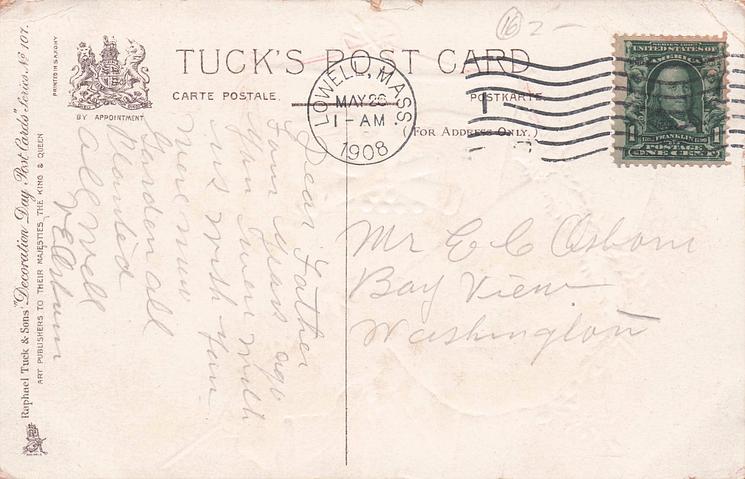 16 2 -
TUCK'S POST CARD
CARTE POSTALE.
POSTKARTE.
(FOR ADDRESS ONLY.)
BY APPOINTMENT
PRINTED IN SAXONY
Raphael Tuck & Sons' "Decoration Day Post Cards" Series No 107.
ART PUBLISHERS TO THEIR MAJESTIES THE KING & QUEEN
LOWELL, MASS
MAY 26
1-AM
1908
SERIES 1902
UNITED STATES OF
AMERICA
FRANKLIN
1 1
POSTAGE
ONE CENT
Dear Father
Four years ago
you were with
us with you
were now
Garden all
Planted
All Well
Mr E C Osborn
Bay View
Washington